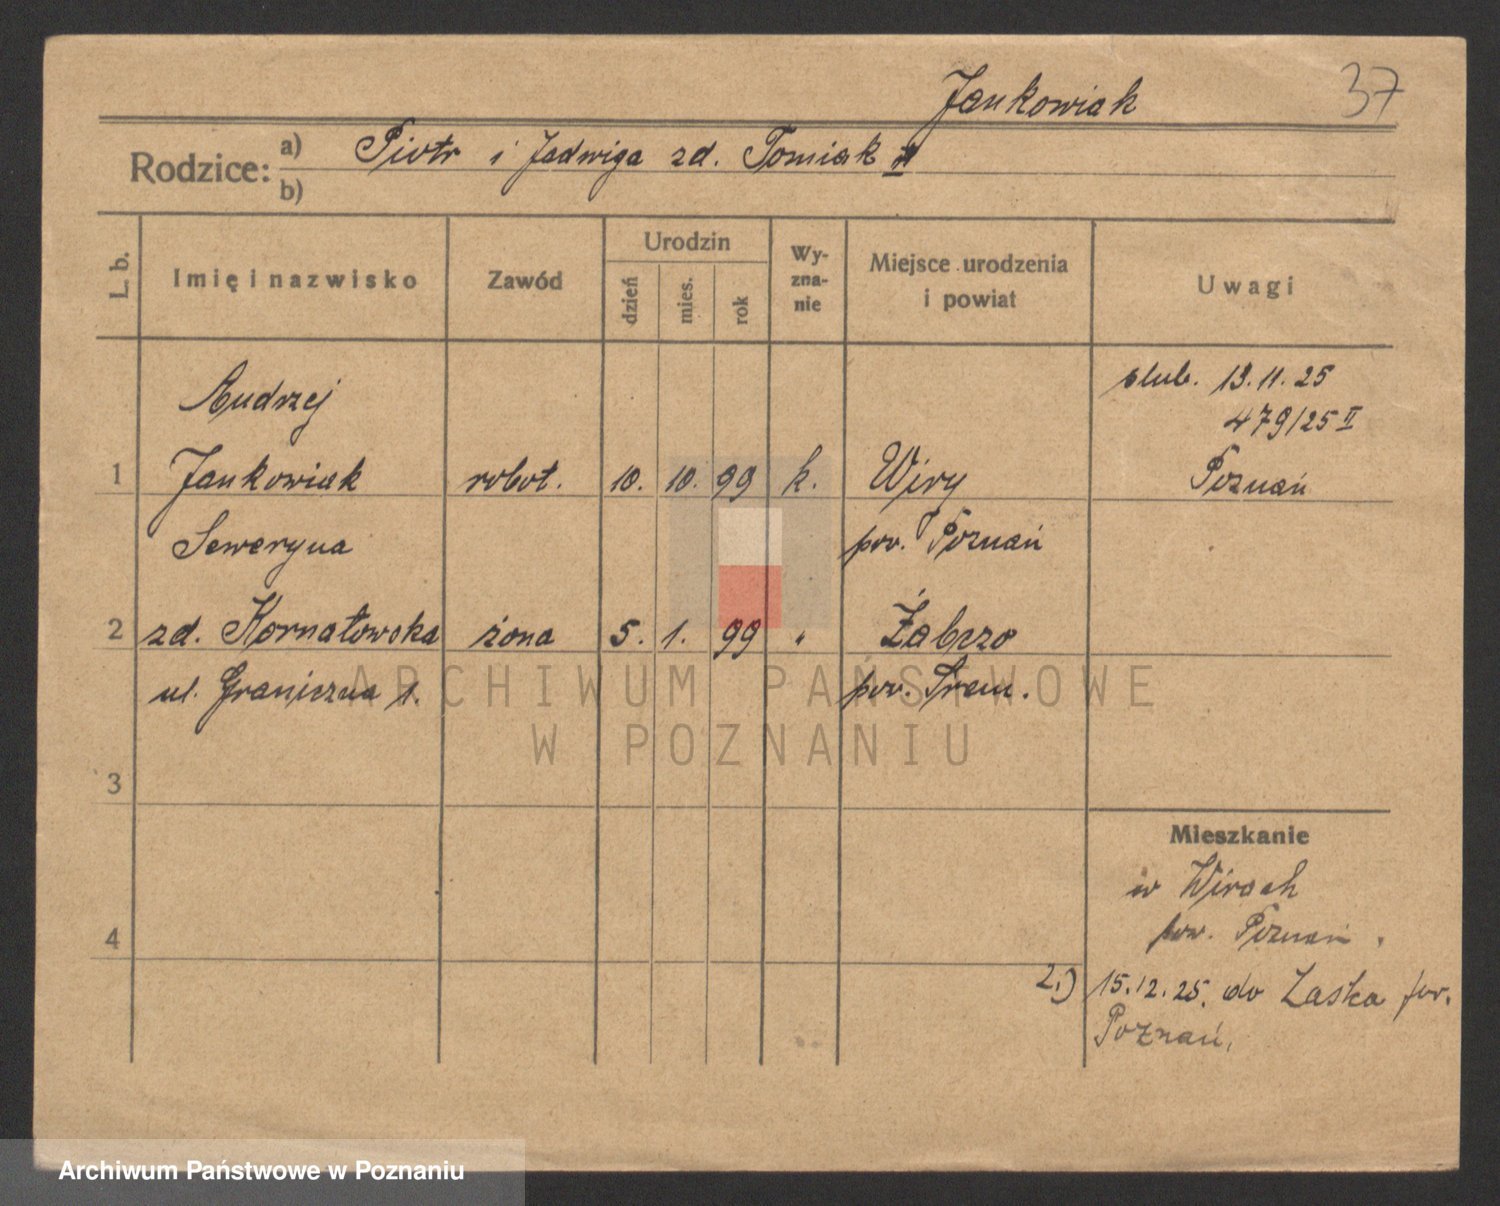 Jankowiak
37
Rodzice: a) Piotr i Jadwiga zd. Tomiak
b)
L. b.
Imię i nazwisko
Zawód
Urodzin
dzień
mies.
rok
Wy-
zna-
nie
Miejsce urodzenia
i powiat
Uwagi
Andrzej
ślub. 13.11.25
479/25 II
1 Jankowiak robot. 10. 10. 99 k. Wiry Poznań
Seweryna pow. Poznań
2 zd. Kornatowska żona 5. 1. 99 " Żabrzo
ul. Graniczna 1. pow. Śrem.
3
4
Mieszkanie
w Wirach
pow. Poznań.
2.) 15.12.25. do Łaska pow.
Poznań.
ARCHIWUM PAŃSTWOWE
W POZNANIU
Archiwum Państwowe w Poznaniu